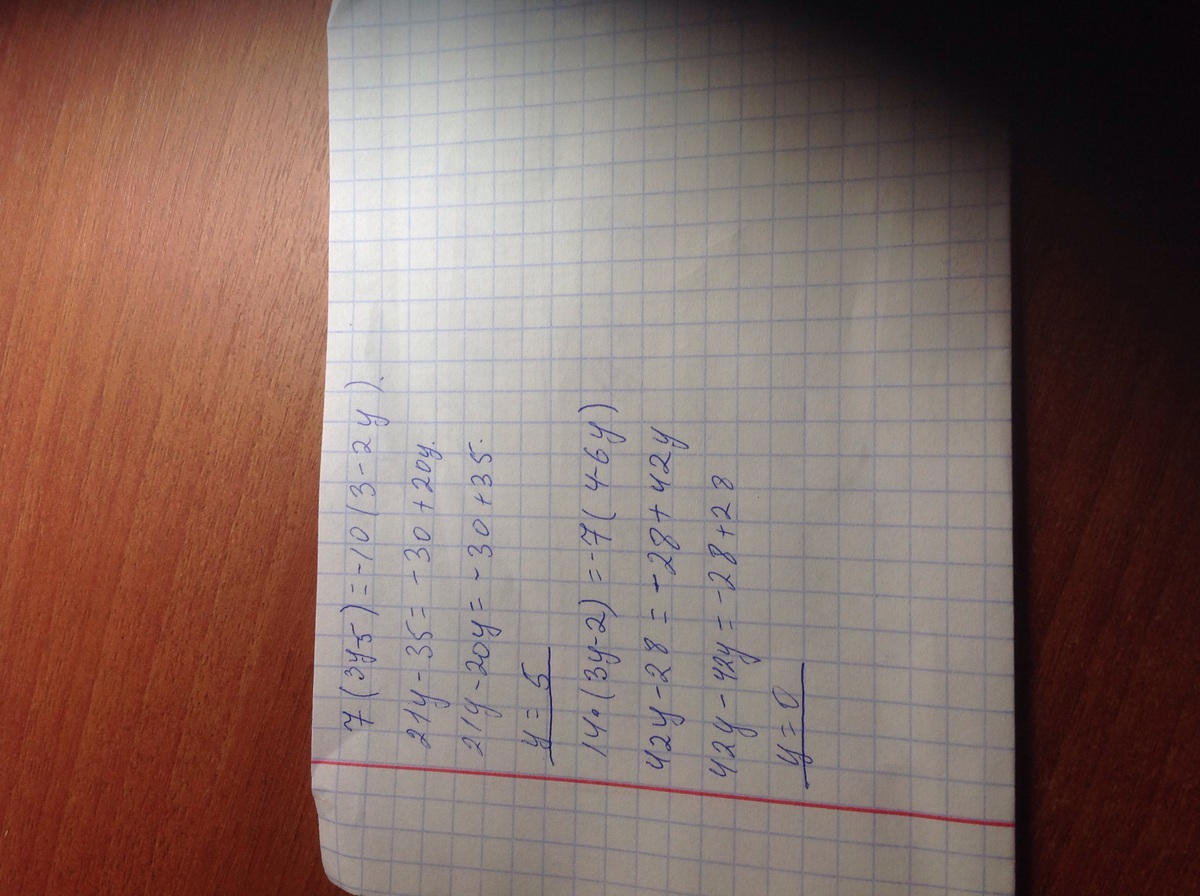 7(3y-5)=-10(3-2y).
21y-35=-30+20y.
21y-20y=-30+35.
y=5
14•(3y-2)=-7(4-6y)
42y-28=-28+42y
42y-42y=-28+28
y=0